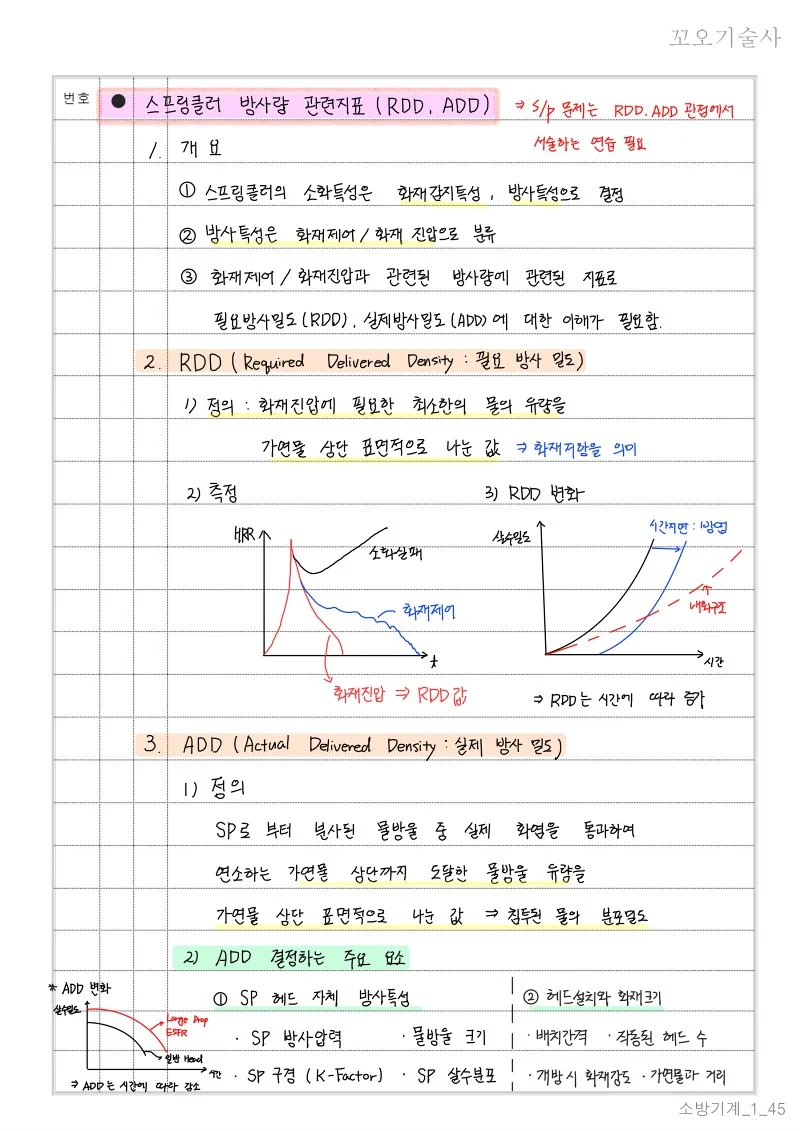 꼬오기술사
번호
● 스프링클러 방사량 관련지표 (RDD, ADD) ⇒ S/p 문제는 RDD. ADD 관점에서
서술하는 연습 필요
1. 개요
① 스프링클러의 소화특성은 화재감지특성, 방사특성으로 결정
② 방사특성은 화재제어/화재 진압으로 분류
③ 화재제어/화재진압과 관련된 방사량에 관련된 지표로
필요방사밀도(RDD), 실제방사밀도(ADD)에 대한 이해가 필요함.
2. RDD (Required Delivered Density : 필요 방사 밀도)
1) 정의 : 화재진압에 필요한 최소한의 물의 유량을
가연물 상단 표면적으로 나눈 값 ⇒ 화재저항을 의미
2) 측정
HRR
소화실패
화재제어
t
화재진압 ⇒ RDD 값
3) RDD 변화
살수밀도
시간지연 : 방염
내화구조
시간
⇒ RDD는 시간에 따라 증가
3. ADD (Actual Delivered Density : 실제 방사 밀도)
1) 정의
SP로 부터 분사된 물방울 중 실제 화염을 통과하여
연소하는 가연물 상단까지 도달한 물방울 유량을
가연물 상단 표면적으로 나눈 값 ⇒ 침투된 물의 분포밀도
2) ADD 결정하는 주요 요소
① SP 헤드 자체 방사특성
· SP 방사압력 · 물방울 크기
· SP 구경 (K-Factor) · SP 살수분포
② 헤드설치와 화재크기
· 배치간격 · 작동된 헤드 수
· 개방시 화재강도 · 가연물과 거리
* ADD 변화
살수밀도
Large Drop
ESFR
일반 Head
시간
⇒ ADD는 시간에 따라 감소
소방기계_1_45